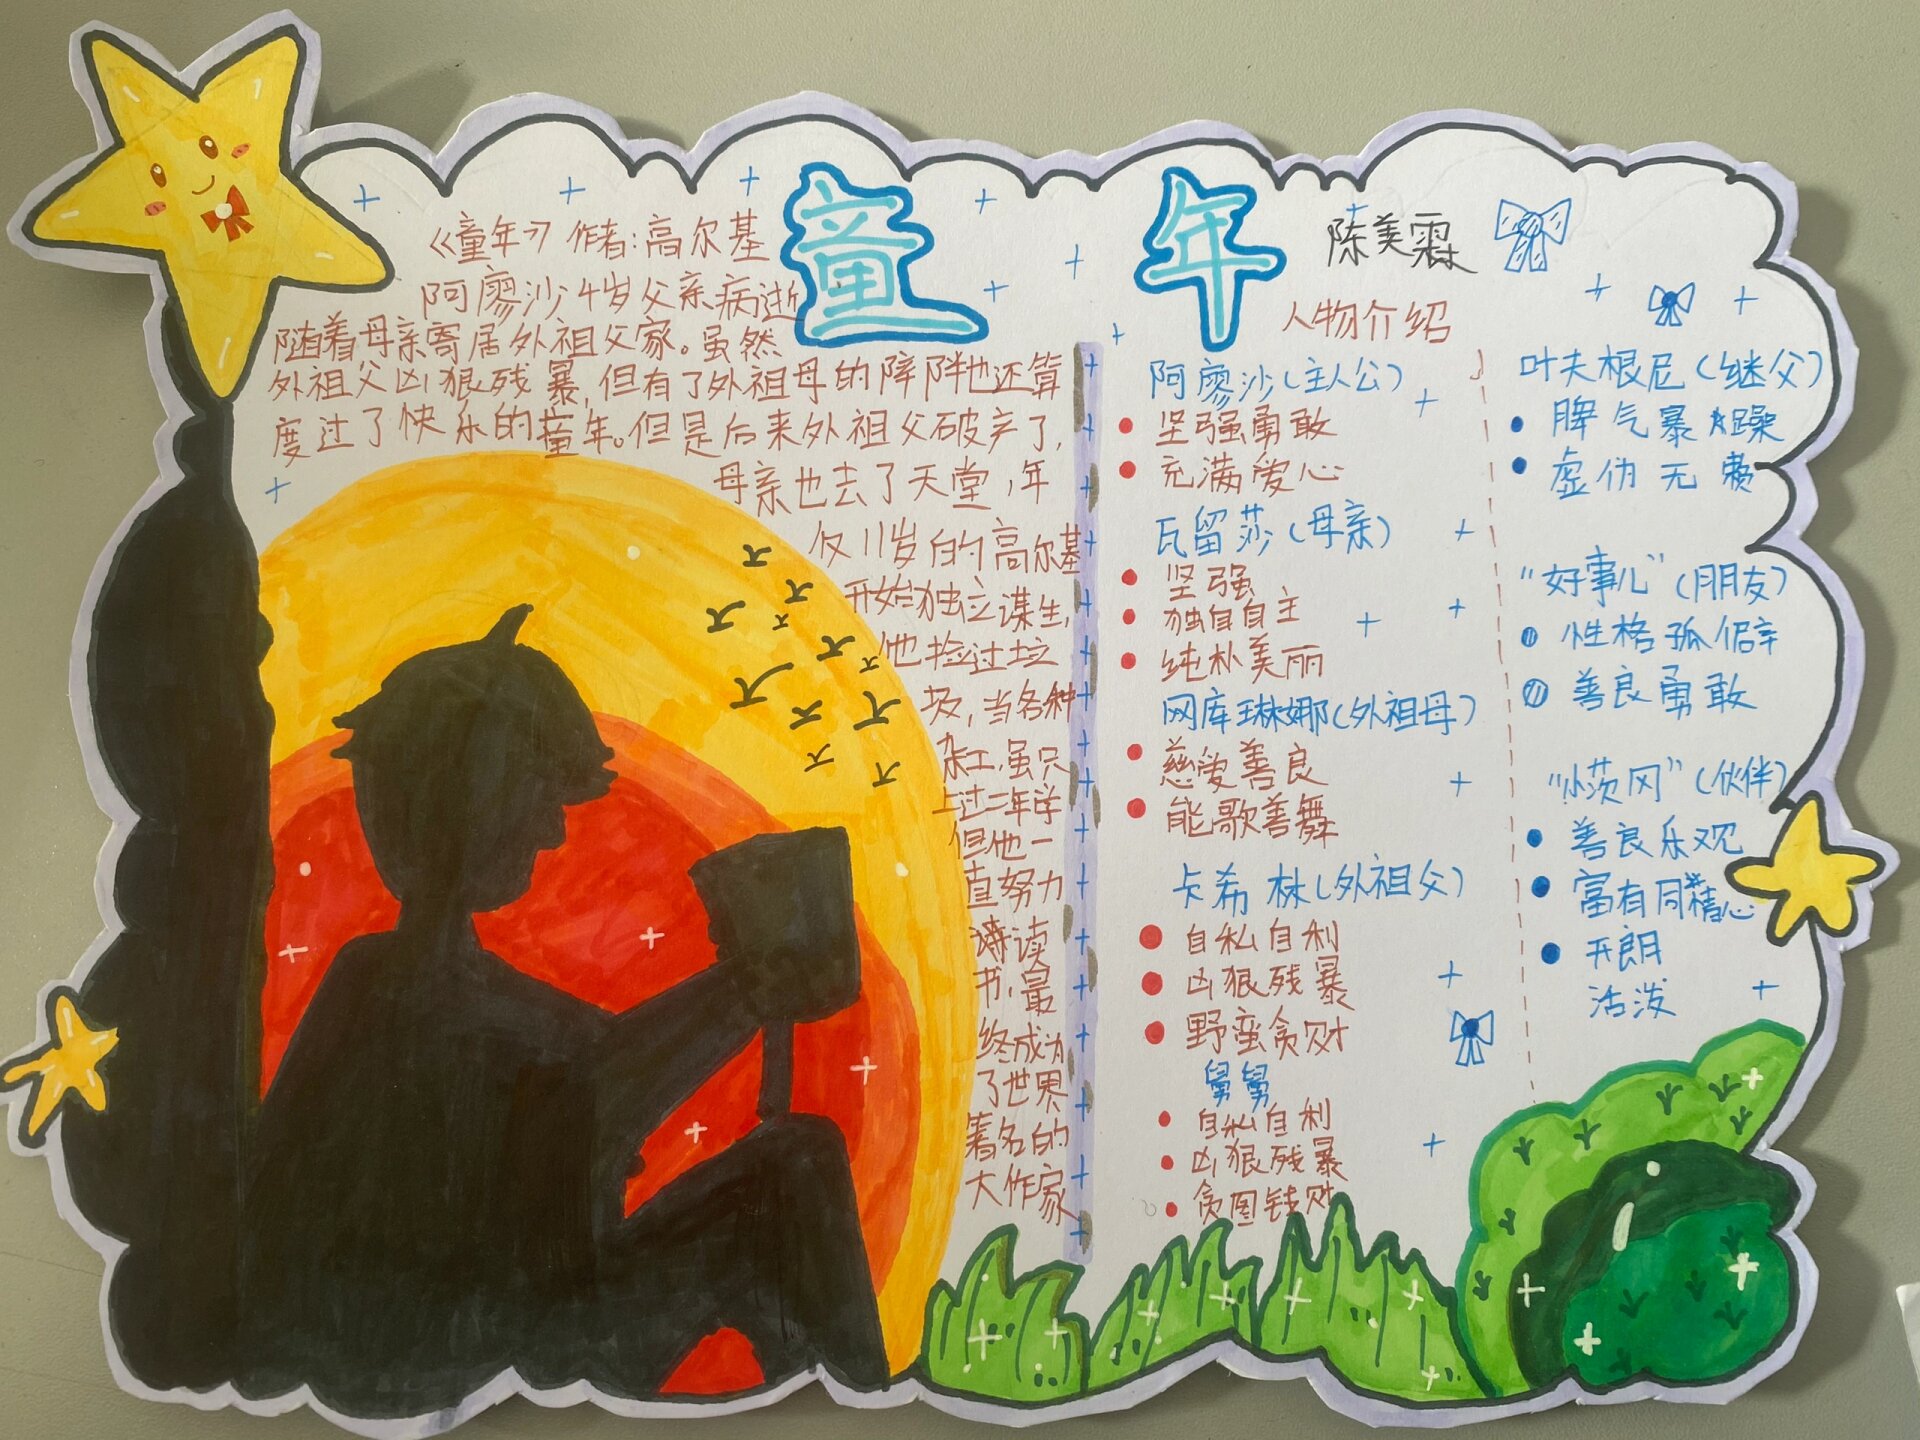 童年
陈美霖
《童年》 作者:高尔基
阿廖沙4岁父亲病逝
随着母亲寄居外祖父家。虽然
外祖父凶狠残暴,但有了外祖母的陪伴也还算
度过了快乐的童年。但是后来外祖父破产了,
母亲也去了天堂,年
仅11岁的高尔基
开始独立谋生,
他捡过垃
圾,当各种
杂工,虽只
上过二年学
但他一
直努力
读
书,最
终成为
了世界
著名的
大作家
人物介绍
阿廖沙(主人公)
坚强勇敢
充满爱心
瓦留莎(母亲)
坚强
独自自主
纯朴美丽
网库琳娜(外祖母)
慈爱善良
能歌善舞
卡希林(外祖父)
自私自利
凶狠残暴
野蛮贪财
舅舅
自私自利
凶狠残暴
贪图钱财
叶夫根尼(继父)
脾气暴躁
虚伪无
“好事儿”(朋友)
性格孤僻
善良勇敢
“小茨冈”(伙伴)
善良乐观
富有同情心
开朗
活泼